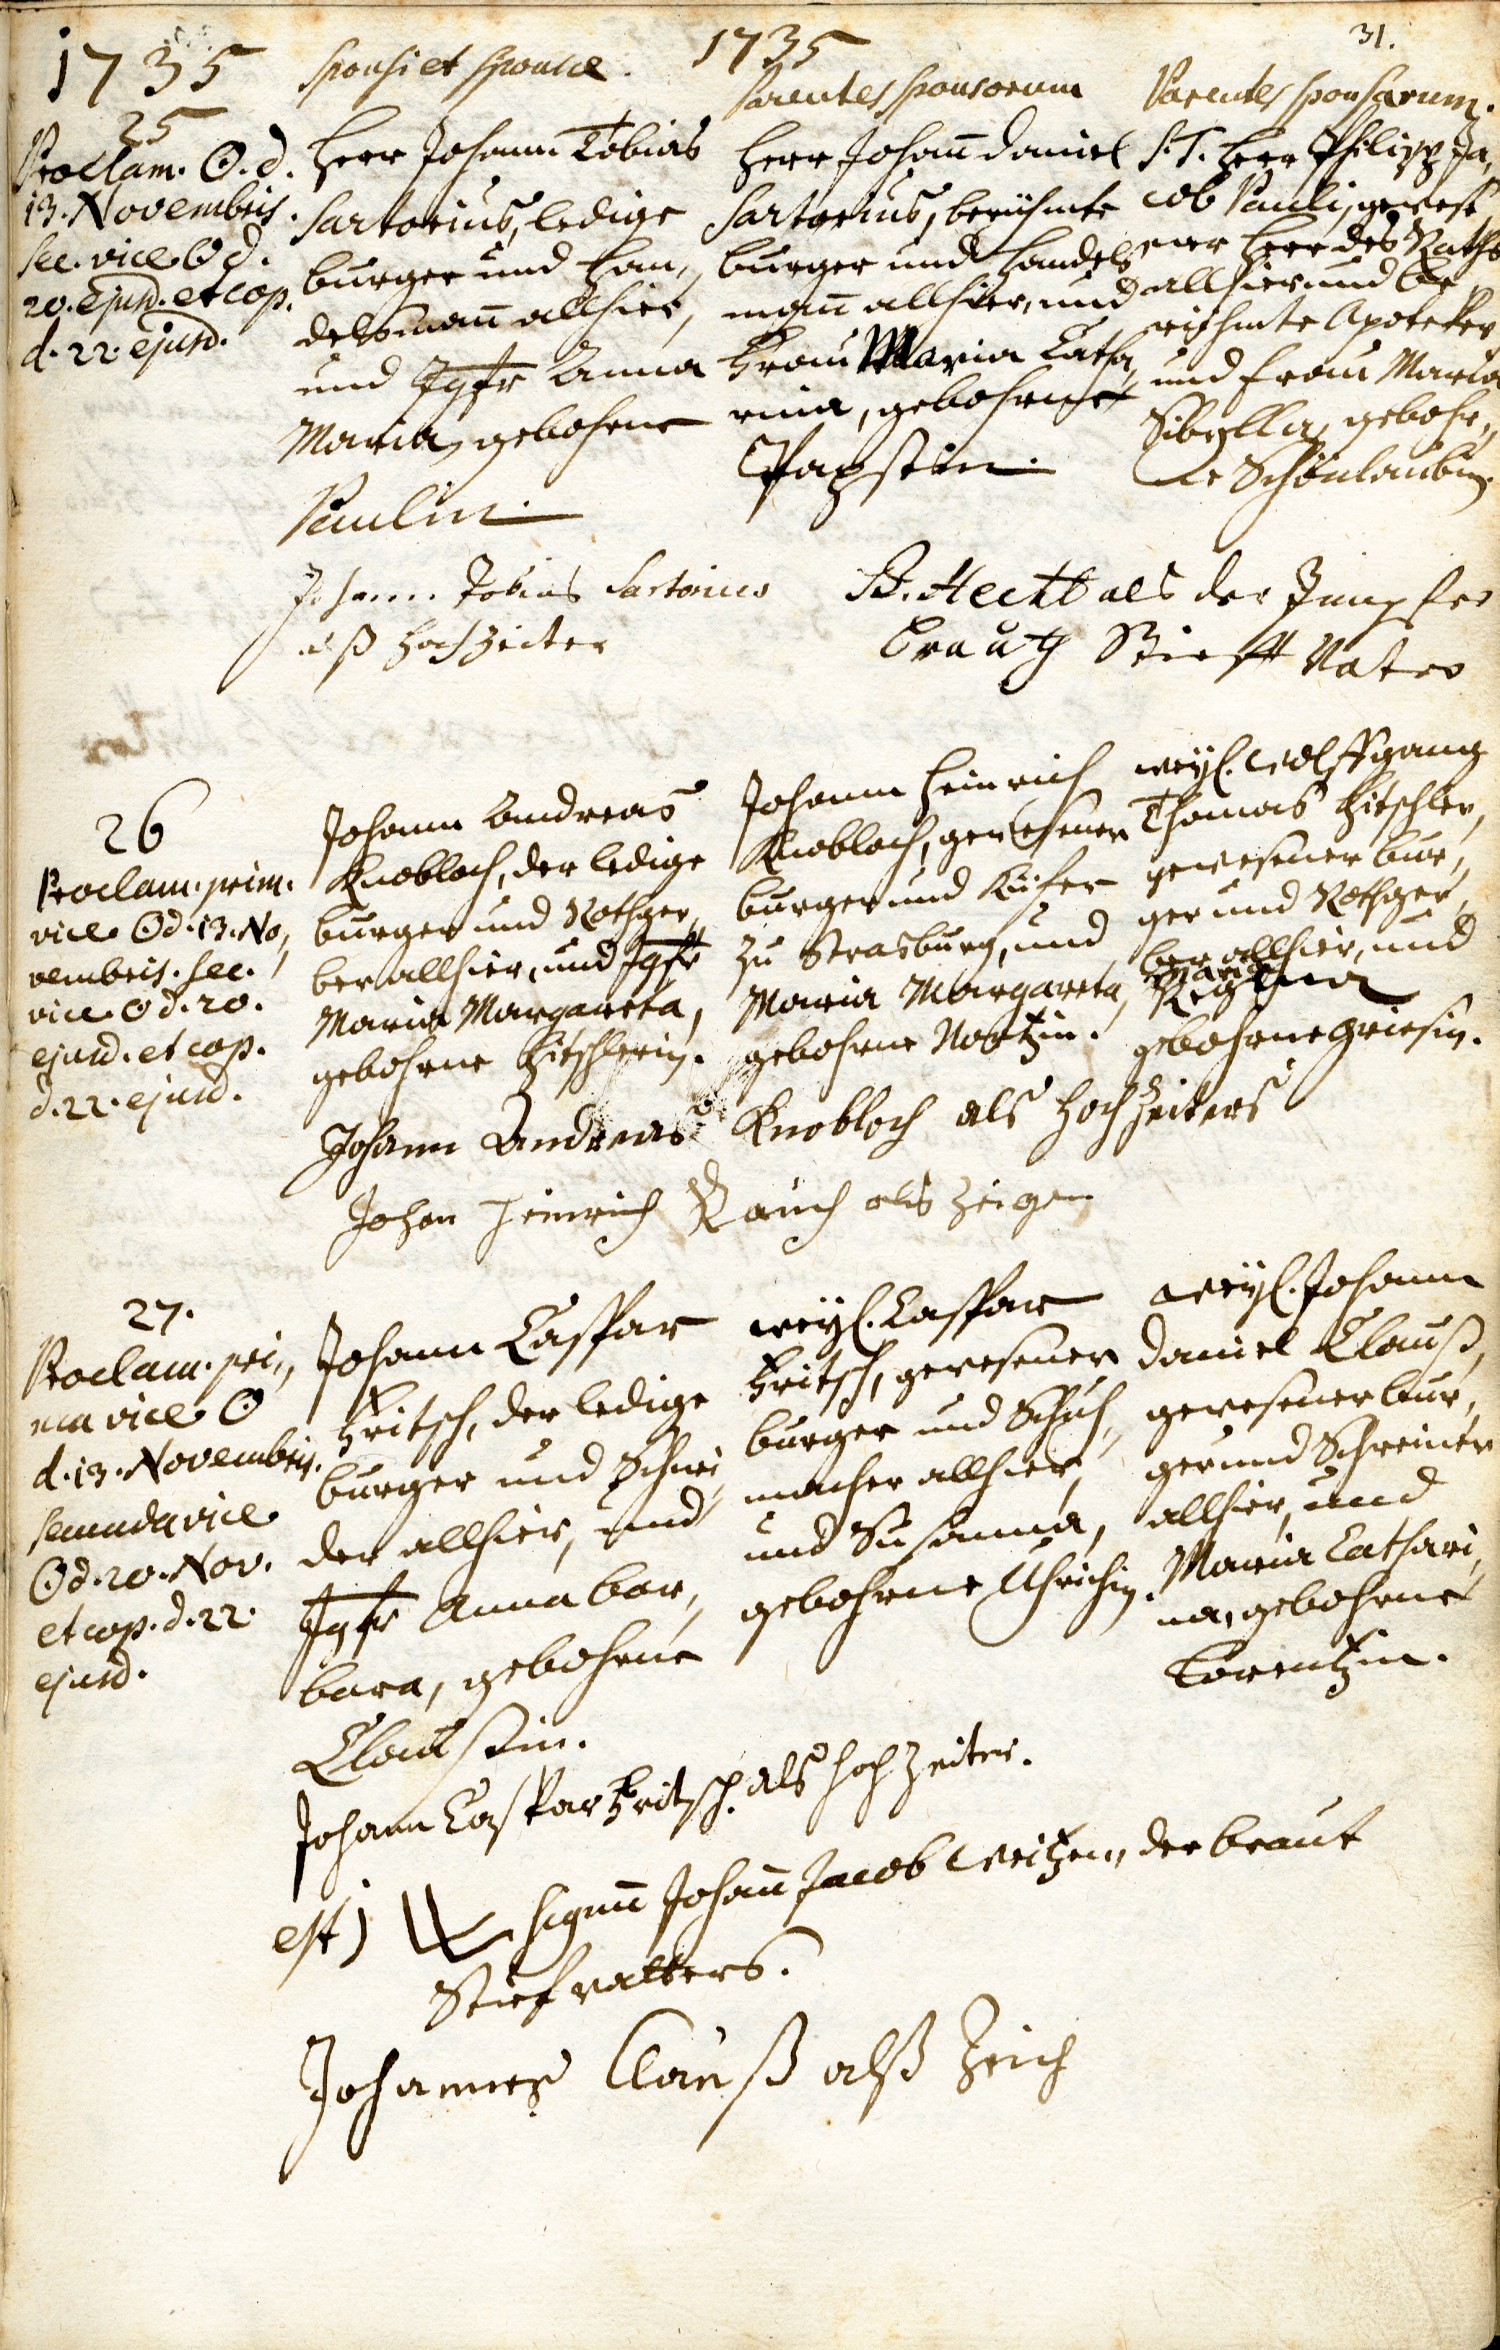 1735 Sponsi et Sponsae. 1735 31.
Parentes Sponsorum Parentes Sponsarum.
25
Proclam. ☉. d.
13. Novembris.
sec. vice ☉ d.
20. Ejusd. et cop.
d. 22. ejusd.
Herr Johann Tobias
Sartorius, ledige
burger und Han,,
delsmañ allhier,
und Jgfr Anna
Maria, gebohrne
Paulin.
Herr Johañ Daniel
Sartorius, berühmte
burger und Handels
mañ allhier, und
Frau Maria Catha,,
rina, gebohrne
Papstin.
S. T. Herr Philipp Ja,,
cob Pauli, gewese,,
ner Herr des Raths
allhier und be,,
rühmte Apoteker
und Frau Maria
Sibylla, gebohr,,
ne Schönlaubin.
Johann Tobias Sartorius
alß Hochzeiter
B. Hecht als der Jungfer
Brauth Stieff Vater
26
Proclam. prim.
vice ☉ d. 13. No,,
vembris. sec.
vice ☉ d. 20.
ejusd. et cop.
d. 22. ejusd.
Johann Andreas
Knobloch, der ledige
burger und Rothger,,
ber allhier, und Jgfr
Maria Margareta,
gebohrne Hitschlerin.
Johann Heinrich
Knobloch, gewesener
burger und Küfer
zu Strasburg, und
Maria Margareta,
gebohrne
weyl. Wolffgang
Thomas Hitschler,
gewesener bur,,
ger und Rothger,,
ber allhier, und
Maria
Regina
gebohrne Griesin.
Johann Andreas Knobloch als Hochzeiters
Johan Heinrich Rauch als Zeigen
27.
Proclam. pri,,
ma vice ☉
d. 13. Novembris.
secunda vice
☉ d. 20. Nov.
et cop. d. 22
ejusd.
Johann Caspar
Fritsch, der ledige
burger und Schnei,,
der allhier, und
Jgfr Anna Bar,,
bara, gebohrne
Claussin.
weyl. Caspar
Fritsch, gewesener
burger und Schuh,,
macher allhier,
und Susanna,
gebohrne Uhrichin.
weyl. Johann
Daniel Clauß,
gewesener bur,,
ger und Schreiner
allhier, und
Maria Cathari,,
na, gebohrne
Lorentzin.
Johann Caspar Fritsch als Hochzeiter.
est) signũ Johañ Jacob Weitzen, der braut
Stiefvatters.
Johannes Clauß alß Zeich